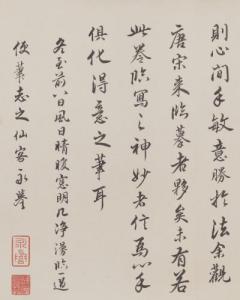 則心閒手敏意勝於法余觀
唐宋來臨摹者夥矣未有若
此卷臨寫之神妙者信為心手
俱化得意之筆耳
冬至前八日風日晴暖窓明几净漫臨一過
便筆志之仙客永瑩